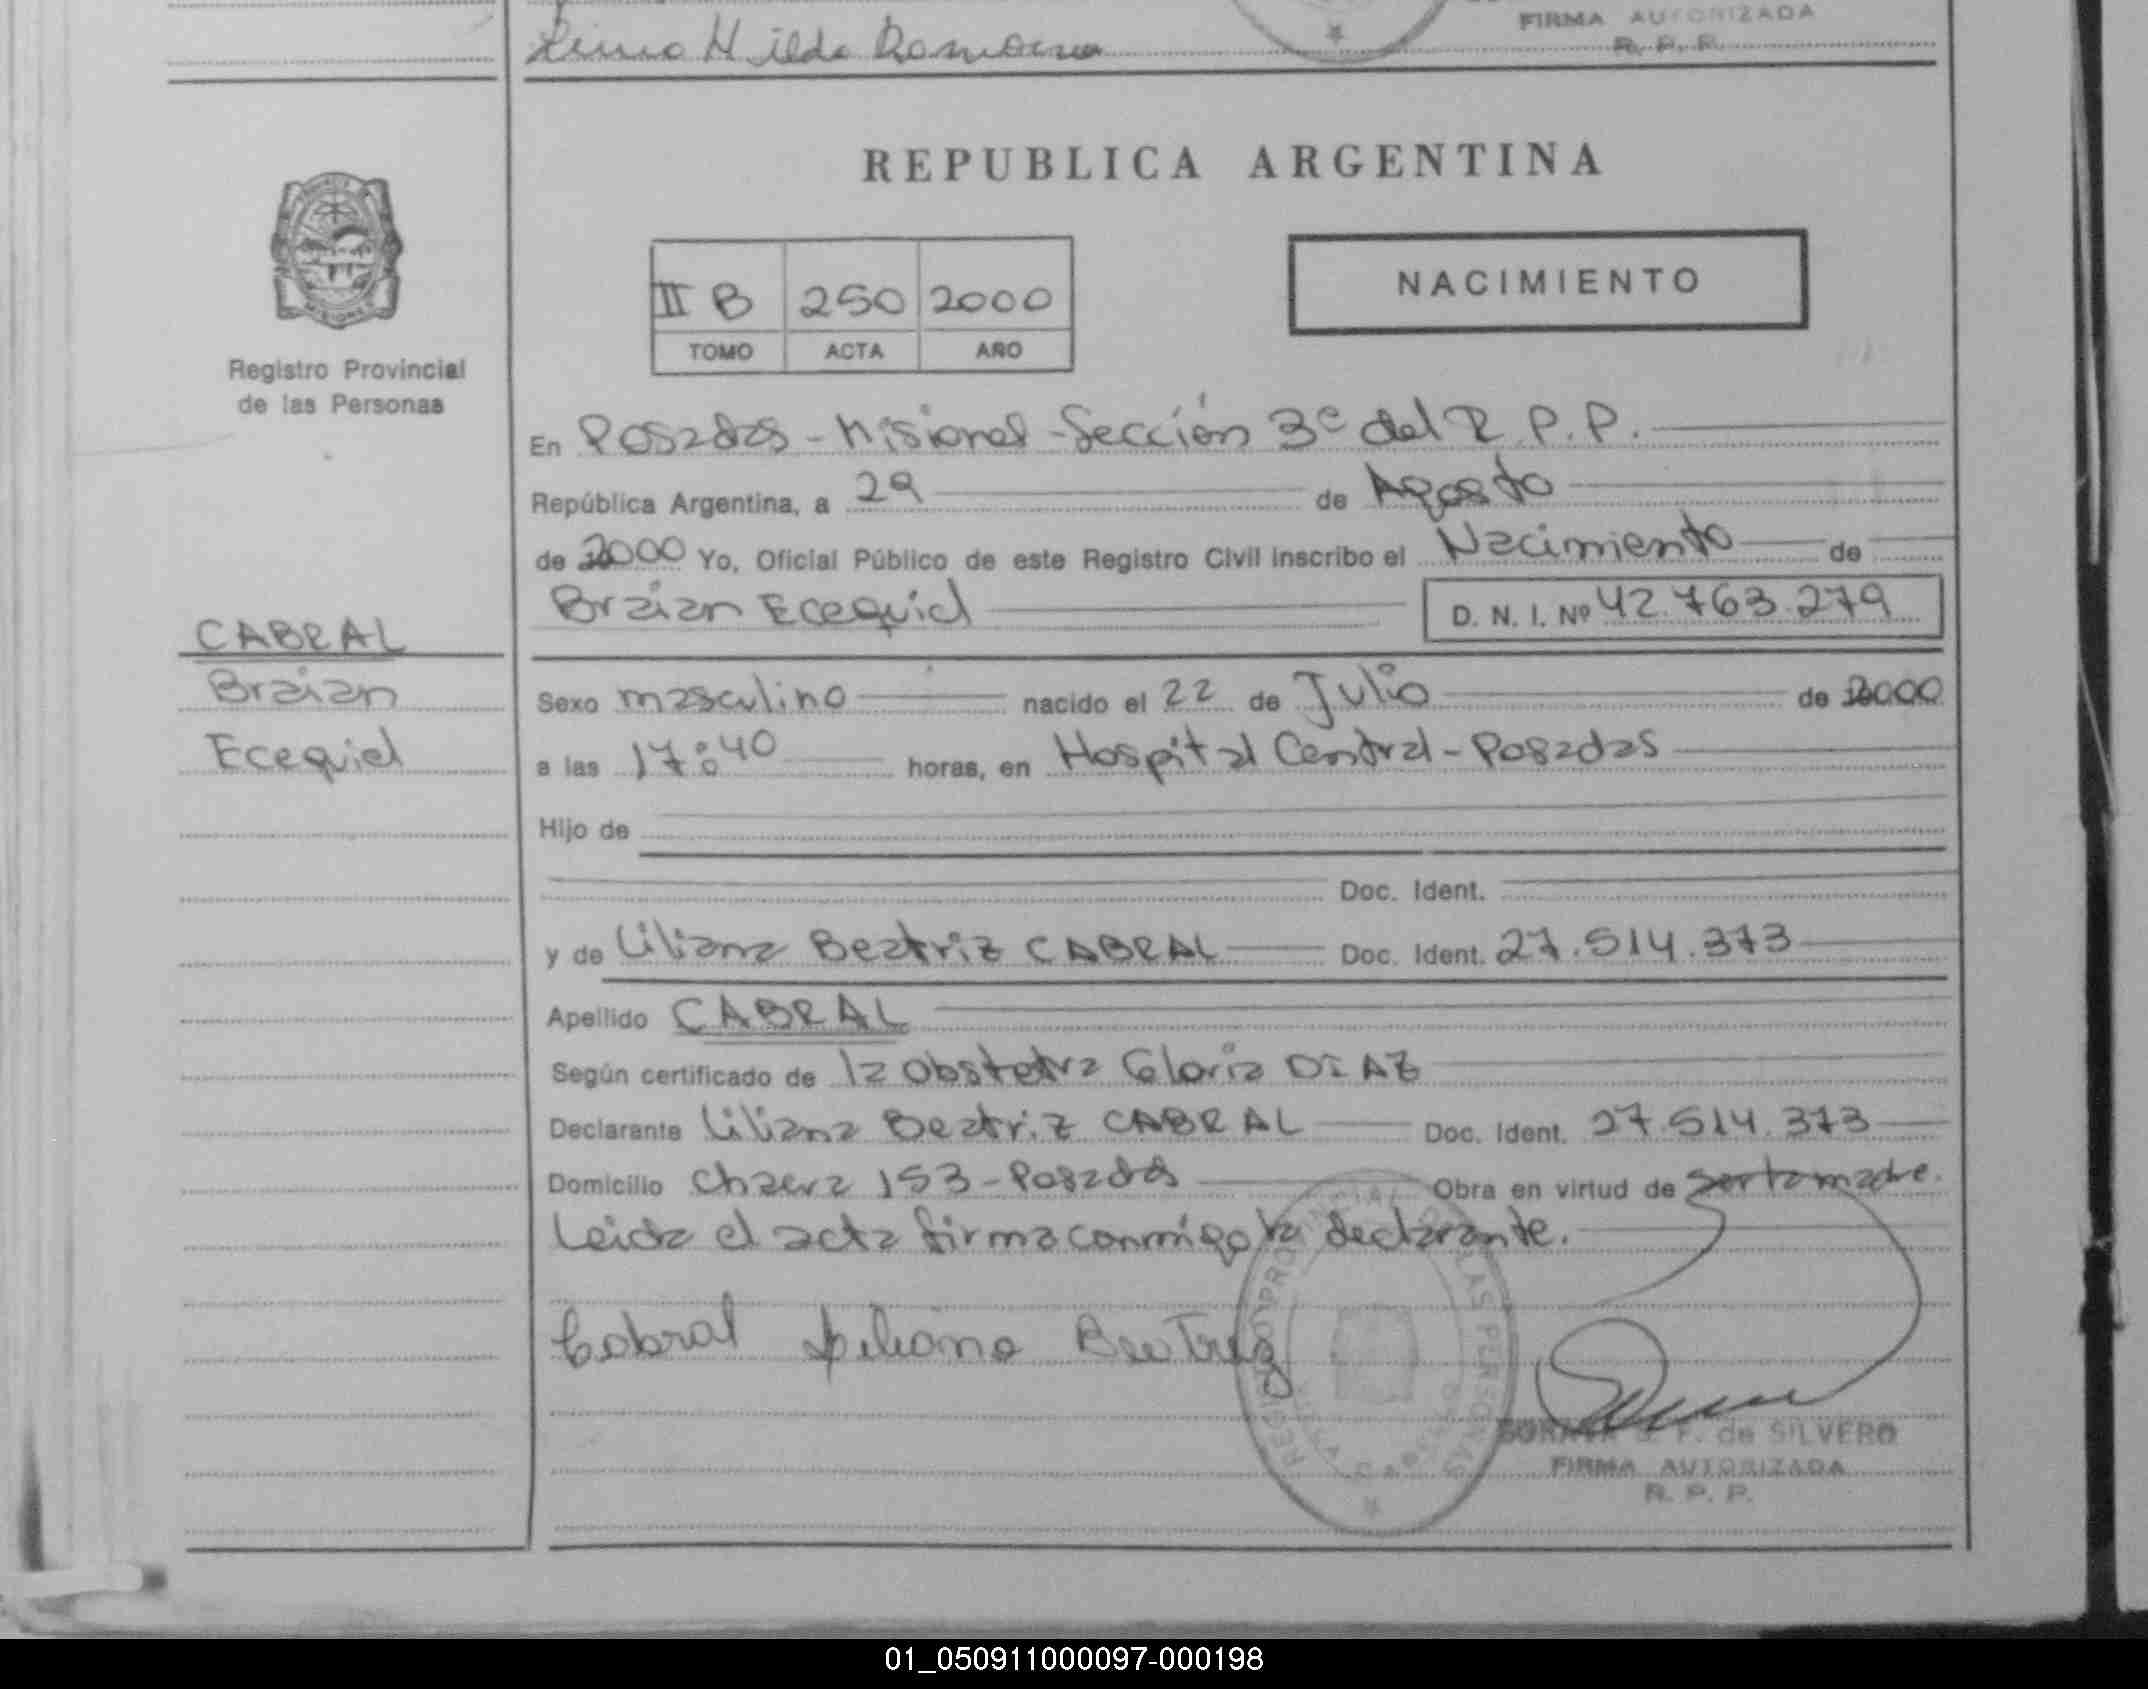 Hilda Ramona
FIRMA AUTORIZADA
R. P. P.
REPUBLICA ARGENTINA
MISIONES
Registro Provincial
de las Personas
II B 250 2000
TOMO ACTA AÑO
NACIMIENTO
En Posadas - Misiones - Sección 3ª del R.P.P.
República Argentina, a 29 de Agosto
de 2000 Yo, Oficial Público de este Registro Civil inscribo el Nacimiento de
Braian Ecequiel D. N. I. Nº 42.763.279
CABRAL
Braian
Ecequiel
Sexo masculino nacido el 22 de Julio de 2000
a las 17:40 horas, en Hospital Central - Posadas
Hijo de
Doc. Ident.
y de Liliana Beatriz CABRAL Doc. Ident. 27.514.373
Apellido CABRAL
Según certificado de la obstetra Gloria DIAZ
Declarante Liliana Beatriz CABRAL Doc. Ident. 27.514.373
Domicilio Chacra 153 - Posadas Obra en virtud de ser la madre.
Leida el acta firma conmigo la declarante.
Cabral Liliana Beatriz
REGISTRO PROVINCIAL DE LAS PERSONAS
POSADAS
SORAYA F. de SILVERO
FIRMA AUTORIZADA
R. P. P.
01_050911000097-000198